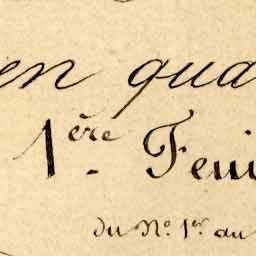 en qua
1ère Feui
du No. 1er au